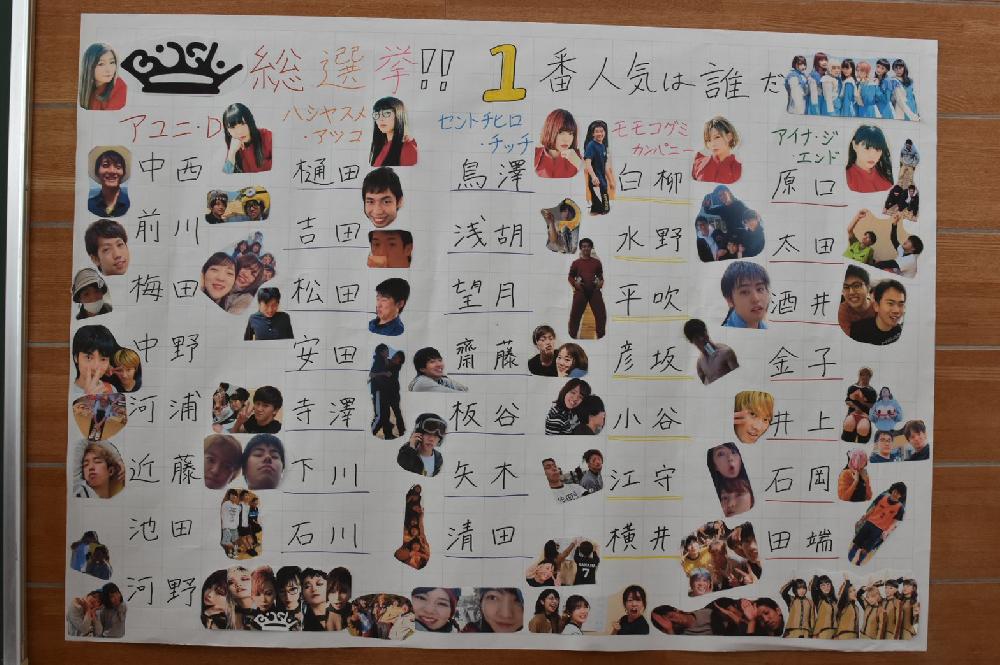 BiSH 総選挙!! 1番人気は誰だ
アユニ・D
ハシヤスメ
・アツコ
セントチヒロ
・チッチ
モモコグミ
カンパニー
アイナ・ジ
・エンド
中西 樋田 鳥澤 白柳 原口
前川 吉田 浅胡 水野 太田
梅田 松田 望月 平吹 酒井
中野 安田 齋藤 彦坂 金子
河浦 寺澤 板谷 小谷 井上
近藤 下川 矢木 江守 石岡
池田 石川 清田 横井 田端
河野
7